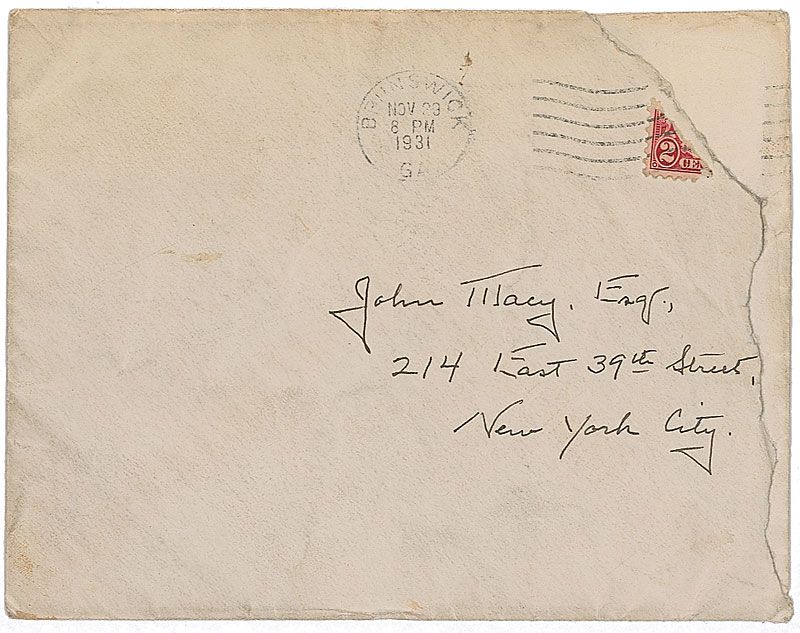 BRUNSWICK
NOV
6 PM
1931
GA
2
John Macy, Esq.,
214 East 39th Street,
New York City.